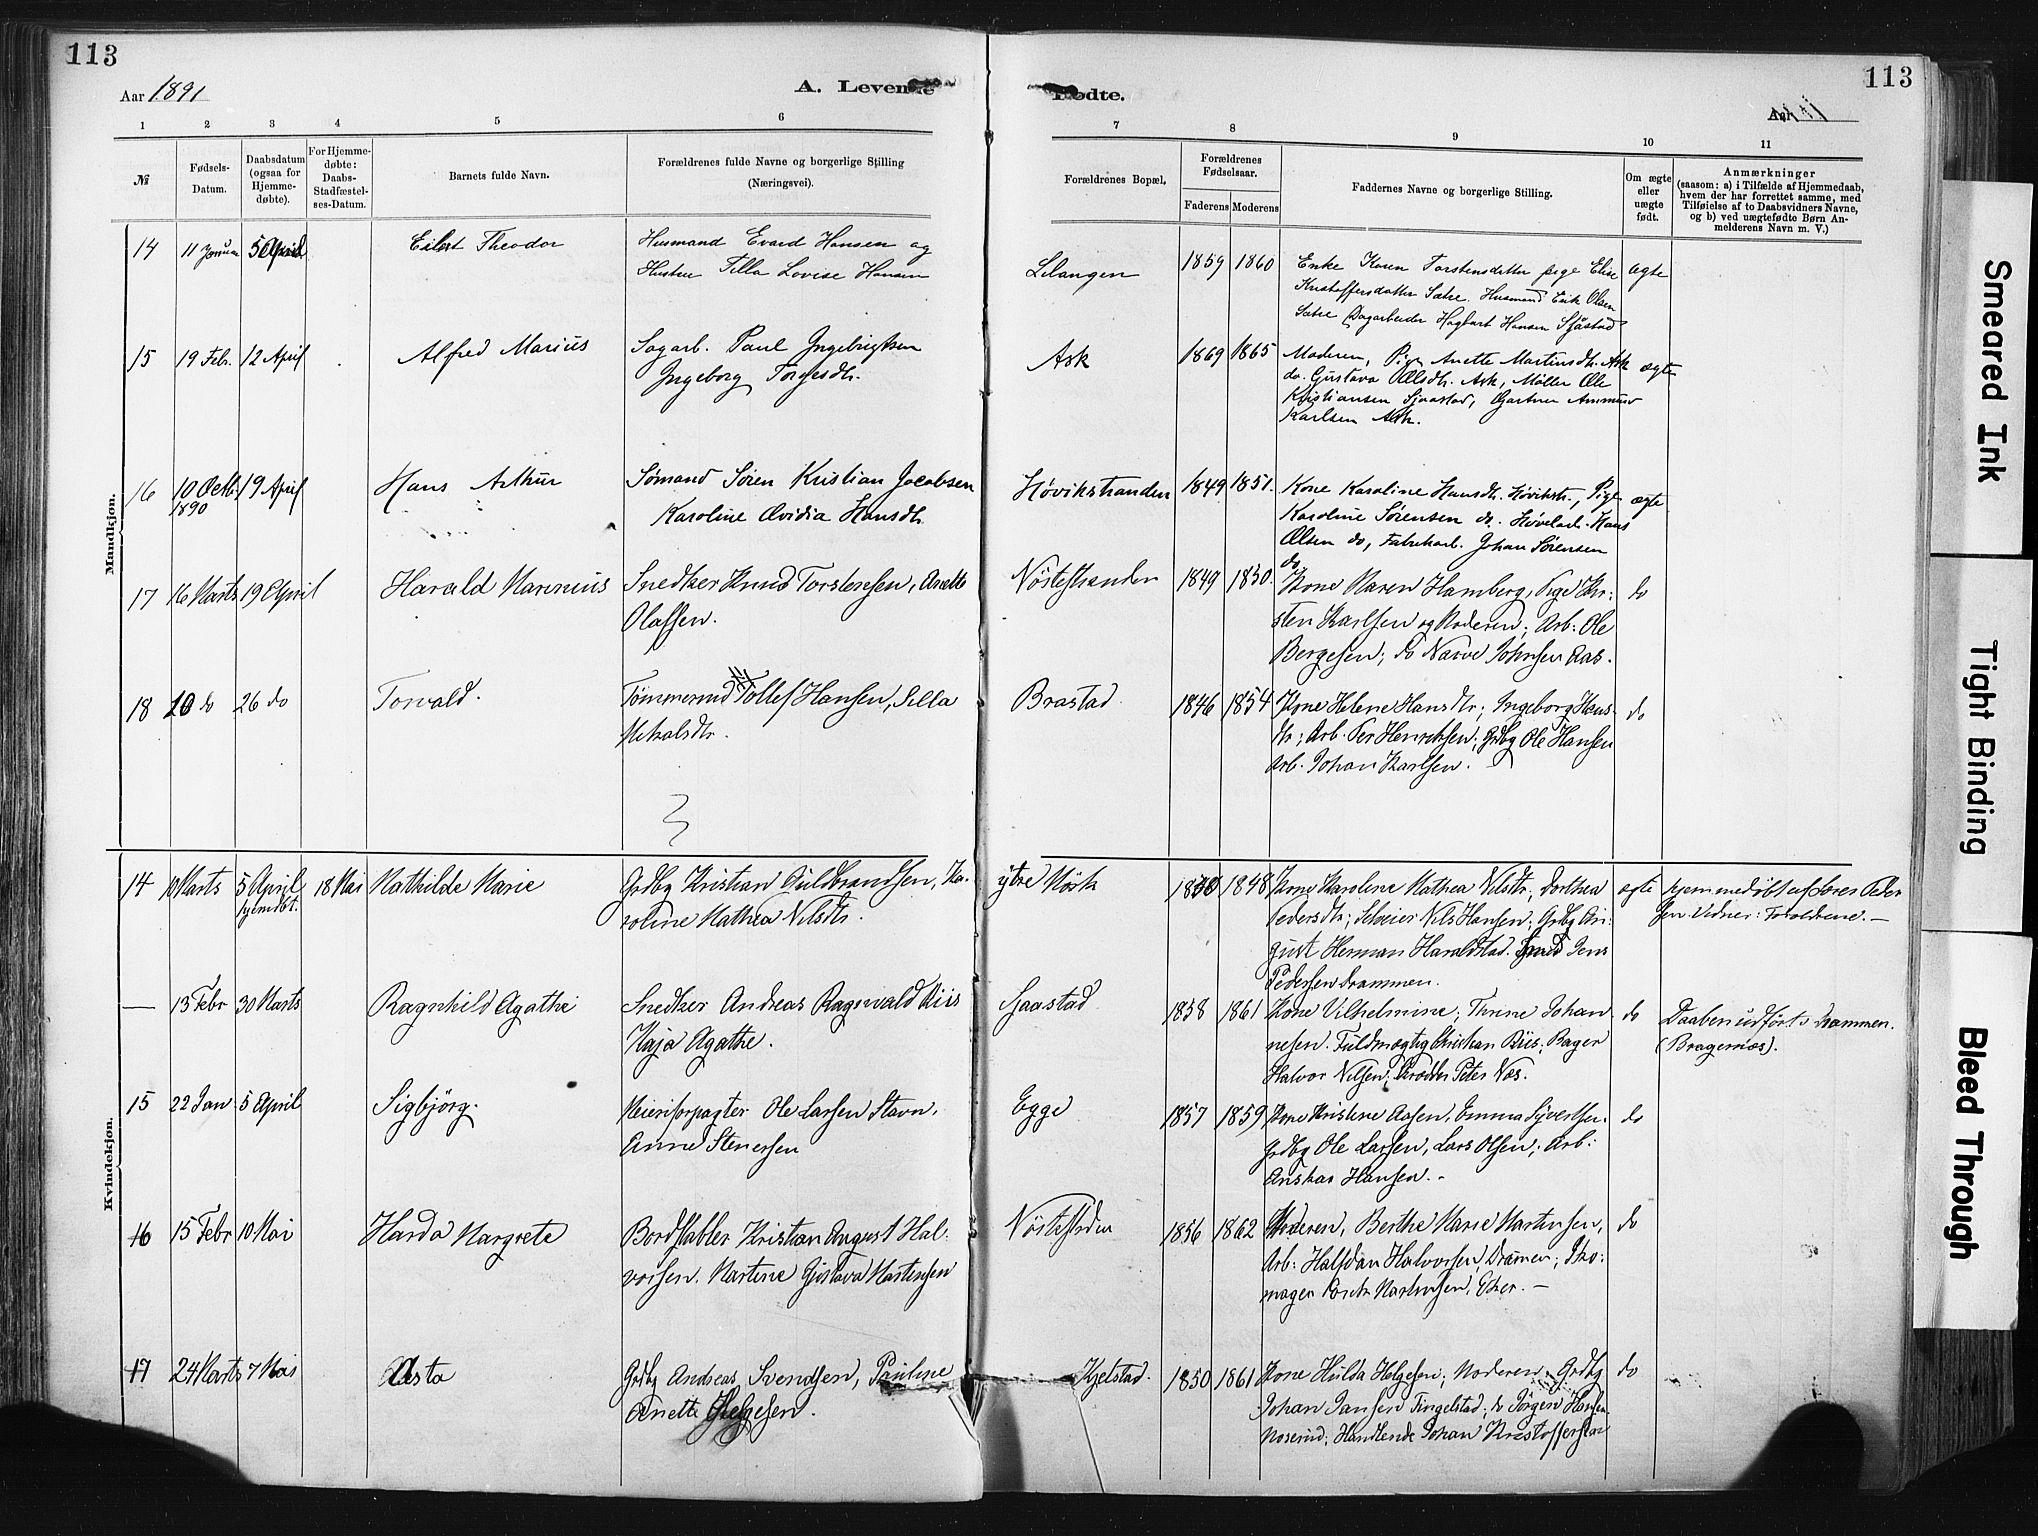 113
Aar 1891
A. Levende
Fødte.
113
1 2 3 4 5 6 7 8 9 10 11
№
Fødsels-
Datum.
Daabsdatum
(ogsaa for
Hjemme-
døbte).
For Hjemme-
døbte:
Daabs-
Stadfæstel-
ses-Datum.
Barnets fulde Navn.
Forældrenes fulde Navne og borgerlige Stilling
(Næringsvei).
Forældrenes Bopæl,
Forældrenes
Fødselsaar.
Faderens Moderens
Faddernes Navne og borgerlige Stilling.
Om ægte
eller
uægte
født.
Anmærkninger
(saasom: a) i Tilfælde af Hjemmedaab,
hvem der har forrettet samme, med
Tilføielse af to Daabsvidners Navne,
og b) ved uægtefødte Børn An-
melderens Navn m. V.)
Mandkjøn.
14 11 Januar 5 April Eilert Theodor
Husmand Evard Hansen og
Hustru Tilla Lovise Hansen
Lilangen 1859 1860
Enke Karen Torstensdatter pige Elise
Kristoffersdatter Sætre. Husmand Erik Olsen
Sætre Dagarbeider Hagbart Hansen Sjåstad
ægte
15 19 Feb. 12 April Alfred Marius
Sagarb. Paul Ingebrigtsen
Ingeborg Torgesdtr.
Ask 1869 1865
Moderen, Pige Anette Martinsdtr. Ask
do. Gustava Olsdtr. Ask, Møller Ole
Kristiansen Sjaastad, Gartner Ammund
Karlsen Ask.
ægte
16 10 Octb. 1890 19 April Hans Arthur
Sømand Søren Kristian Jacobsen
Karoline Ovidia Hansdtr.
Høvikstranden 1849 1851.
Kone Karoline Hansdtr. Høvikstr., Pige
Karoline Sørensen do. Høvelarb. Hans
Olsen do, Fabrikarb. Johan Sørensen
do
ægte
17 16 Marts 19 April Harald Marinius
Snedker Knud Torstensen, Anette
Olafsen.
Nøstestranden 1849 1850.
Kone Maren Hamberg, Pige Kir:
sten Karlsen og Moderen; Arb: Ole
Bergesen; do Narve Johnsen Aas.
do
18 20 do 26 do Torvald.
Tømmermd Tollef Hansen, Silla
Mikalsdtr.
Brastad 1846 1854
Kone Helene Hansdtr; Ingeborg Hans-
dtr; Arb. Per Henriksen; Grdbg Ole Hansen
Arb. Johan Karlsen.
do
Kvindekjøn.
14 10 Marts 5 April hjemdbt. 18 Mai Mathilde Marie
Grdbg Kristian Guldbrandsen, Ka-
roline Mathea Nilsdtr.
ytre Mörk 1848
Kone Karoline Mathea Nilsdtr; Dorthea
Pedersdtr; Selveier Nils Hansen; Grdbg Au-
gust Herman Haraldstad. Smed Jens
Pedersen Drammen.
ægte
hjemmedøbt af Søren Peder
sen. Vidner: Forældrene. —
— 13 Febr 30 Marts Ragnhild Agathe
Snedker Andreas Ragnvald Riis
Kaja Agathe.
Sjaastad 1858 1861
Kone Vilhelmine; Thrine Johan
nesen. Fuldmægtig Christian Riis; Bager
Halvor Nilsen; Peter Næs.
do
Daaben udført i Drammen.
(Bragernæs).
15 22 Jan 5 April Sigbjørg.
Meieriforpagter Ole Larsen Stavn.
Anne Stenersen
Egge 1857 1859
Kone Kristine Aasen, Emma Syvertsen.
Grdbg Ole Larsen, Lars Olsen; Arb:
Anshar Hansen. -
do
16 15 Febr 10 Mai Harda Margrete
Bordstabler Kristian August Hal-
vorsen. Martine Gustava Martinsen
Nøstestrden 1856 1862
Moderen, Berthe Marie Martinsen,
Arb: Halfdan Halvorsen, Dramen; Sko:
mager Martinsen, Eker. —
do
17 24 Marts 7 Mai Asta
Grdbg Andreas Svendsen, Pauline
Anette Helgesen.
Kjelstad. 1850 1861
Kone Hulda Helgesen; Moderen. Grdbg
Johan Jansen Tingelstad; do Jørgen Hansen
Noserud; Handlende Johan Kristoffersen
do
Smeared Ink
Tight Binding
Bleed Through